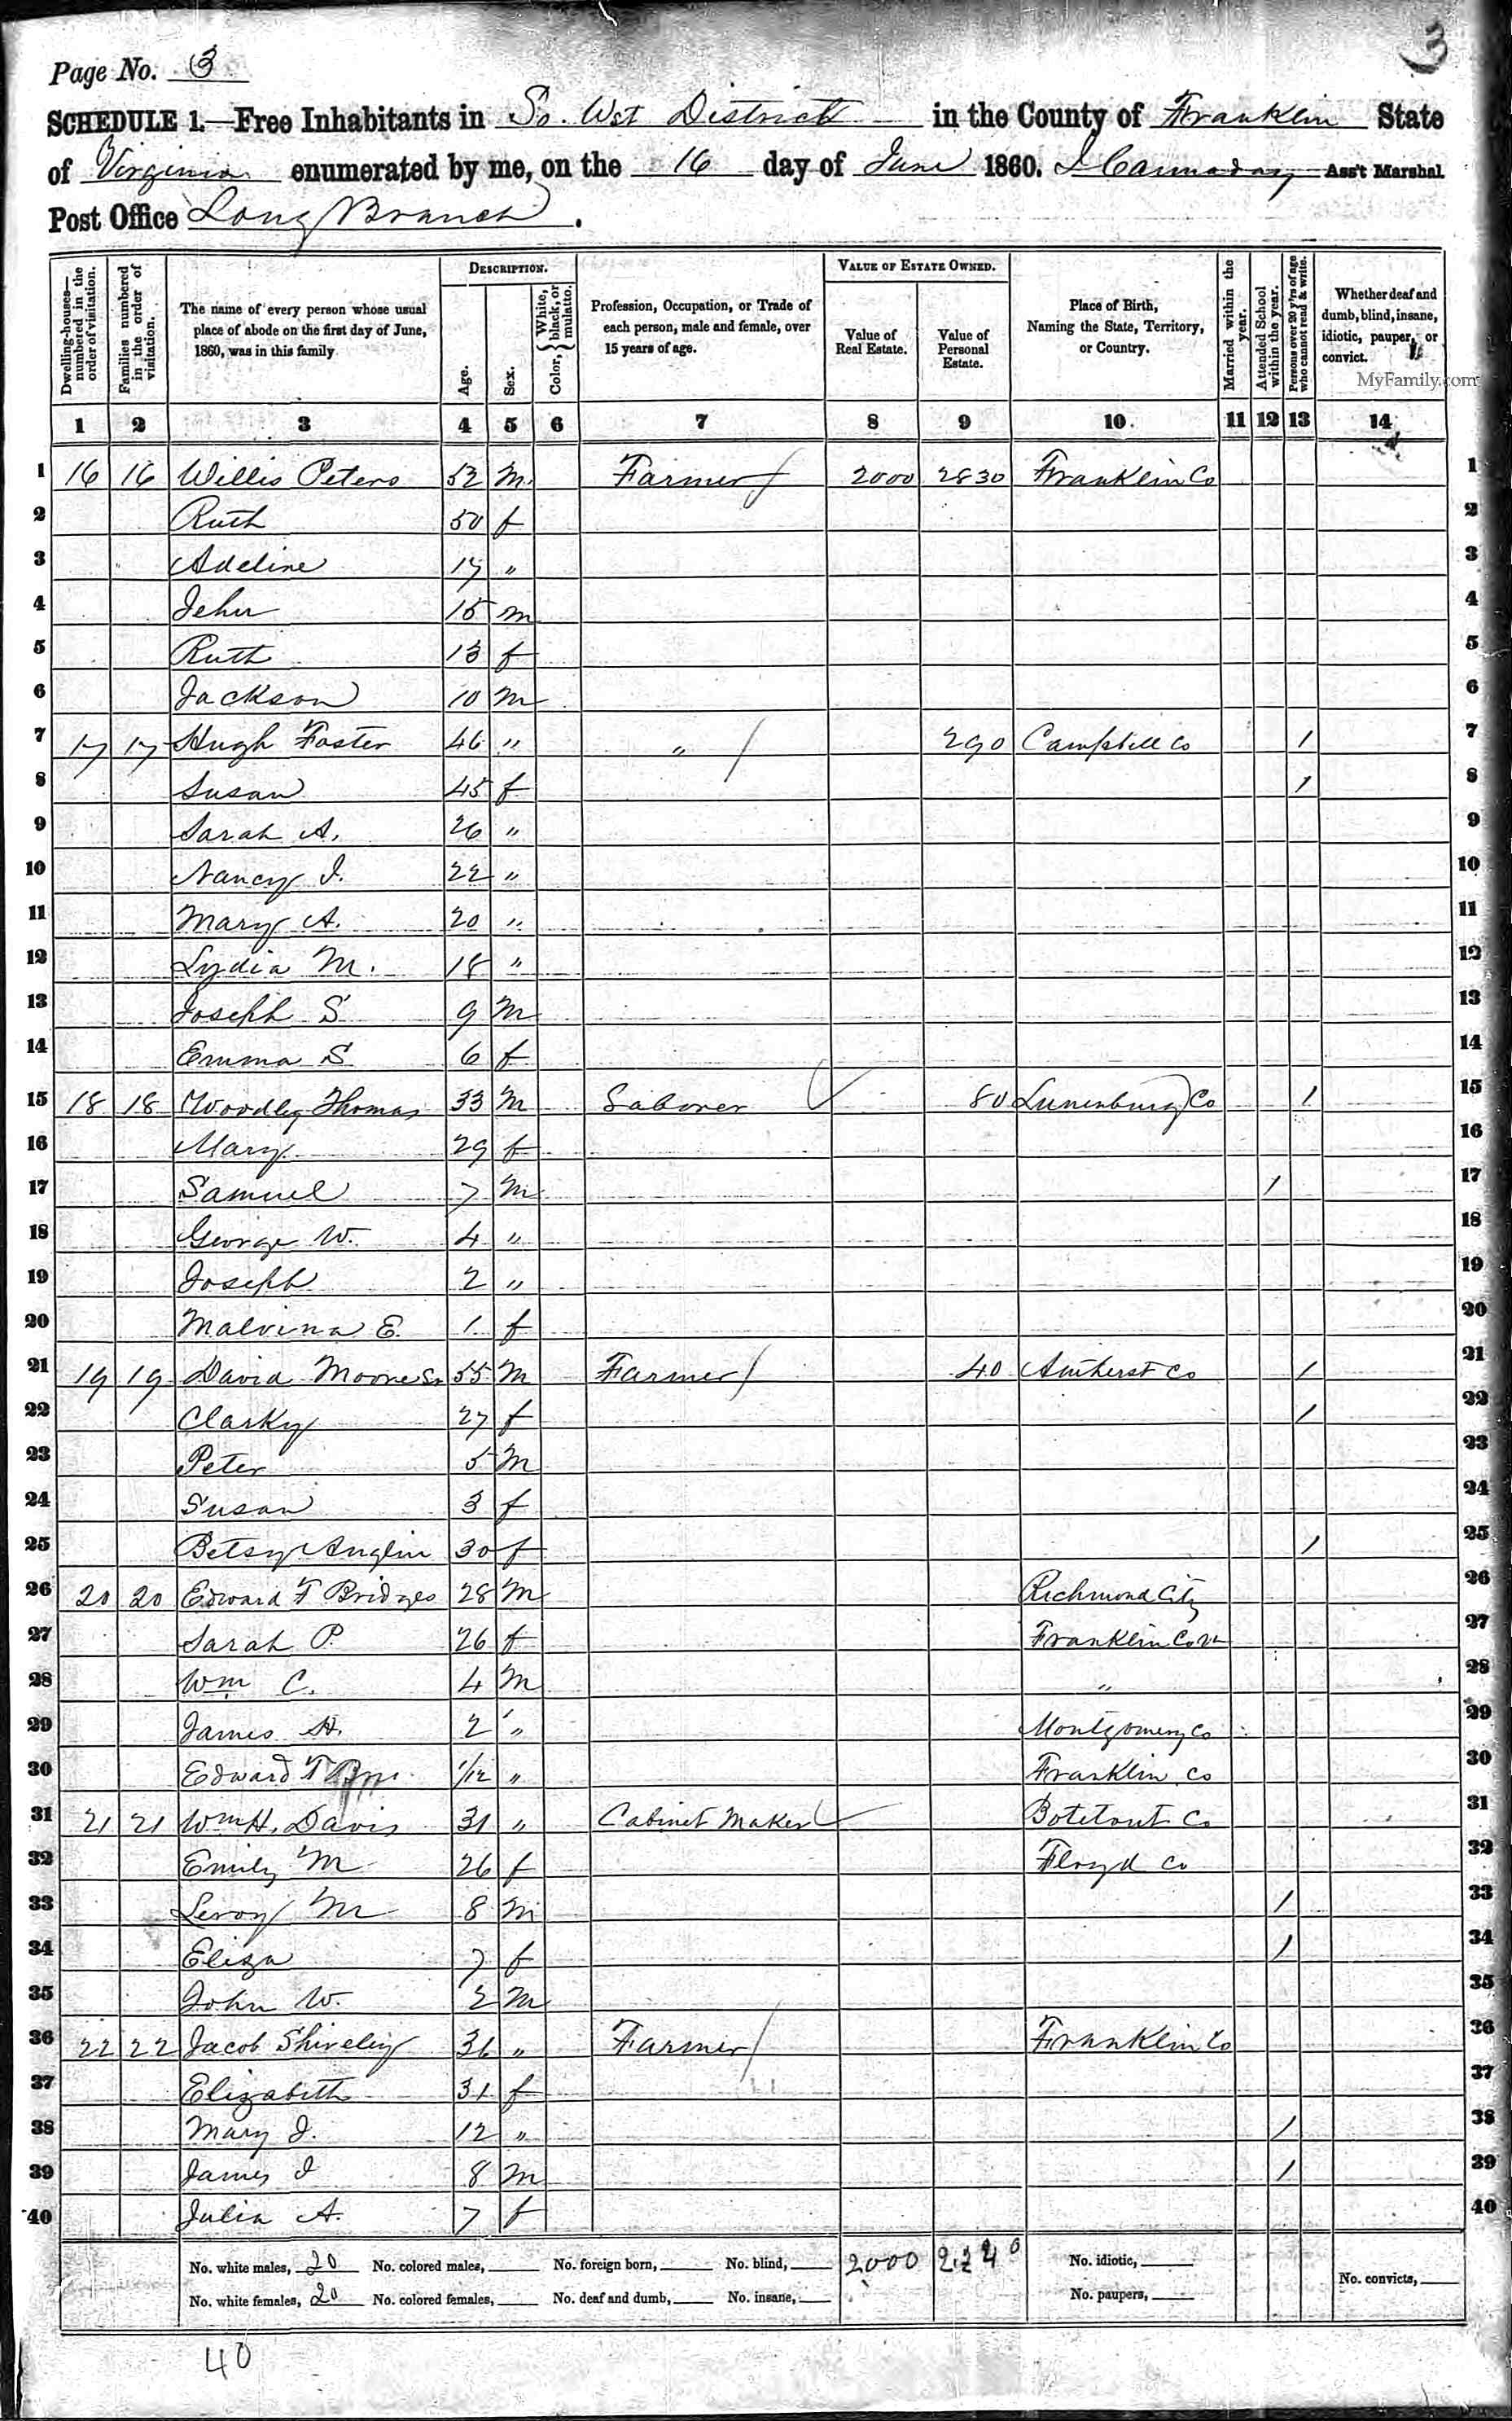 3
Page No. 3
SCHEDULE 1.—Free Inhabitants in So. Wst District in the County of Franklin State
of Virginia enumerated by me, on the 16 day of June 1860. Ass't Marshal
Post Office Long Branch.
Dwelling-houses—numbered in the order of visitation.
Families numbered in the order of visitation.
The name of every person whose usual place of abode on the first day of June, 1860, was in this family
DESCRIPTION.
Age.
Sex.
Color, { White, black, or mulatto.
Profession, Occupation, or Trade of each person, male and female, over 15 years of age.
VALUE OF ESTATE OWNED.
Value of Real Estate.
Value of Personal Estate.
Place of Birth, Naming the State, Territory, or Country.
Married within the year.
Attended School within the year.
Persons over 20 y'rs of age who cannot read & write.
Whether deaf and dumb, blind, insane, idiotic, pauper, or convict.
MyFamily.com
1 2 3 4 5 6 7 8 9 10. 11 12 13 14
1 16 16 Willis Peters 52 M. Farmer 2000 2830 Franklin Co 1
2 Ruth 50 f 2
3 Adeline 17 " 3
4 Jehu 15 m 4
5 Ruth 13 f 5
6 Jackson 10 M 6
7 17 17 Hugh Foster 46 " " / 290 Campbell Co / 7
8 Susan 45 f / 8
9 Sarah A. 26 " 9
10 Nancy J. 22 " 10
11 Mary A. 20 " 11
12 Lydia M. 18 " 12
13 Joseph S 9 M 13
14 Emma S 6 f 14
15 18 18 Woodley Thomas 33 M Laborer 80 Lunenburg Co / 15
16 Mary 29 f 16
17 Samuel 7 M / 17
18 George W. 4 " 18
19 Joseph 2 " 19
20 Malvina E. 1 f 20
21 19 19 David Moore Sr 55 M Farmer / 40 Amherst Co / 21
22 Clarky 27 f / 22
23 Peter 5 M 23
24 Susan 3 f 24
25 Betsy Anglin 30 f / 25
26 20 20 Edward F Bridges 28 M Richmond City 26
27 Sarah P. 26 f Franklin Co Va 27
28 Wm C. 4 M " 28
29 James H. 2 " Montgomery Co 29
30 Edward T 1/12 " Franklin Co 30
31 21 21 Wm H. Davis 31 " Cabinet Maker Botetout Co 31
32 Emily M 26 f Floyd Co 32
33 Leroy M 8 M / 33
34 Eliza 7 f / 34
35 John W. 2 M 35
36 22 22 Jacob Shively 36 " Farmer / Franklin Co 36
37 Elizabeth 31 f 37
38 Mary J. 12 " / 38
39 James J 8 M / 39
40 Julia A. 7 f 40
No. white males, 20 No. colored males, No. foreign born, No. blind, 2000 No. idiotic,
No. white females, 20 No. colored females, No. deaf and dumb, No. insane, No. paupers, No. convicts,
40